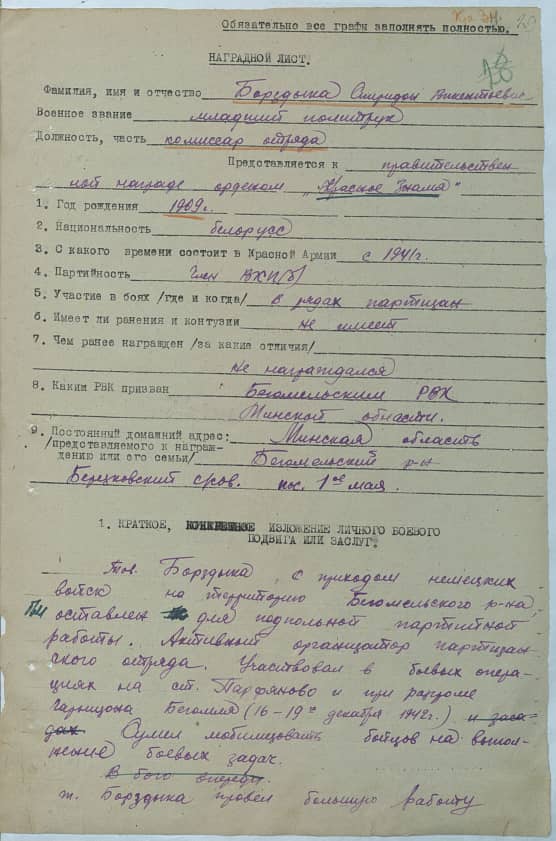 Обязательно все графы заполнять полностью.
20
НАГРАДНОЙ ЛИСТ.
Фамилия, имя и отчество Борздыка Спиридон Викентьевич
Военное звание младший политрук
Должность, часть комиссар отряда
Представляется к правительствен
ной награде орденом "Красное Знамя"
1. Год рождения 1909г.
2. Национальность белорусс
3. С какого времени состоит в Красной Армии с 1941г.
4. Партийность Член ВКП(б)
5. Участие в боях /где и когда/ в рядах партизан
6. Имеет ли ранения и контузии не имеет
7. Чем ранее награжден /за какие отличия/
не награждался
8. Каким РВК призван Бегомельским РВК
Минской области.
9. Постоянный домашний адрес: Минская область
/представляемого к награж-
дению или его семьи/ Бегомельский р-н
Березковский с/сов. пос. 1ое мая.
1. КРАТКОЕ, КОНКРЕТНОЕ ИЗЛОЖЕНИЕ ЛИЧНОГО БОЕВОГО
ПОДВИГА ИЛИ ЗАСЛУГ.
Тов. Борздыка, с приходом немецких
войск на территорию Бегомельского р-на,
оставлен для подпольной партийной
работы. Активный организатор партизан-
ского отряда. Участвовал в боевых опера-
циях на ст. Парфяново и при разгроме
гарнизона Бегомля (16-19го декабря 1942г.) и заса-
дах Сумел мобилизовать бойцов на выпол-
нение боевых задач.
т. Борздыка провел большую работу